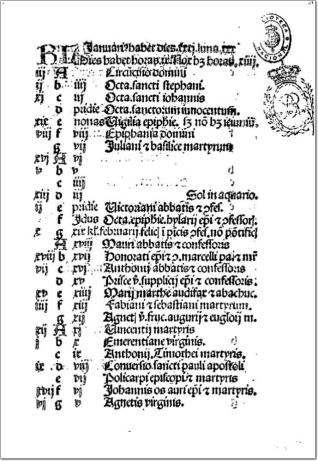 KL Januari⁹ habet dies .xxxj. luna .xxx
Dies habet horas .ix. Nox hȝ horas .xiiij.
iij A Circūcisio domini
ij b iiij Octa. sancti stephani.
c iij Octa. sancti iohannis
d pridie Octa. sanctorum innocentum.
xix e nonas Uigilia epiphie. sȝ nō hȝ ieiuniū.
viij f viij Epiphania domini
g vij Juliani & basilice martyrum
xvj A vj
v b v
c iiij
xiij d iij Sol in aquario.
ij e pridie Uictoriani abbatis & ɔfes.
f Idus Octa. epiphie. hylarij ep̄i & ɔfessoris.
x g xix kl. februarij felic̄ i pīcis ɔfes. nō pōtific̄
A xviij Mauri abbatis & confessoris
xviij b xvij Honorati ep̄i & marcelli pap. mr̄
vij c xvj Anthonij abbatis & confessoris
d xv Prisce v̄. supplicij ep̄i & confessoris.
xv e xiiij Marij marthe audifax & abacuc.
iiij f xiij Fabiani & sebastiani martyrum.
g xij Agnet̄ v̄. fruc. augurij & eugloij m̄.
xij A xj Uincentij martyris
j b x Emerentiane virginis.
c ix Anthonij, Timothei martyris.
ix d viij Conuersio sancti pauli apostoli
e vij Policarpi episcopi & martyris
xvij f vj Johannis os auri ep̄i & martyris.
vj g v Agnetis virginis.